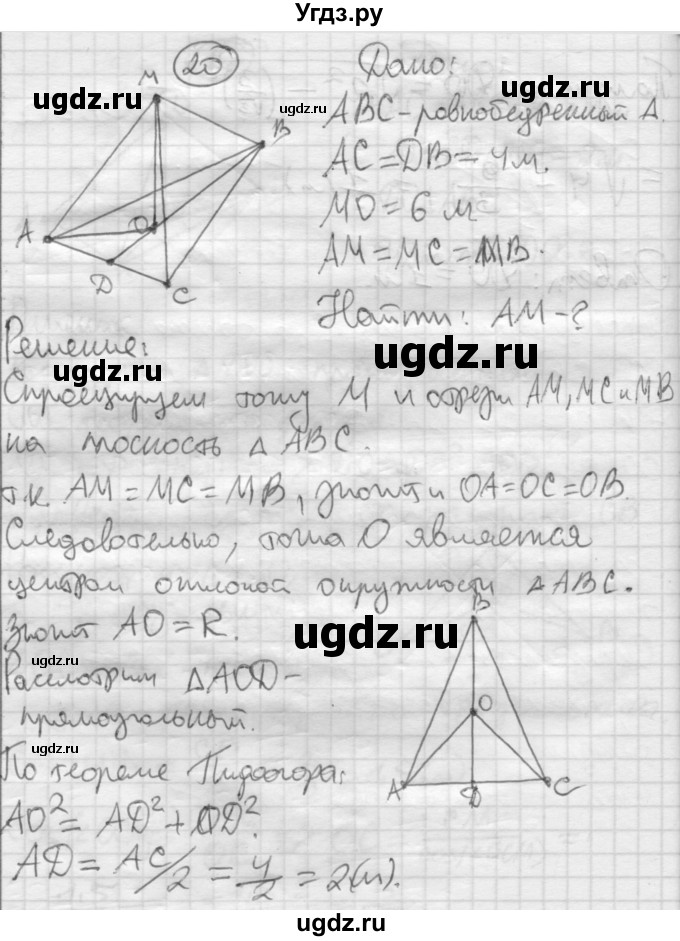 Угдз.ру
20
Дано:
ABC-равнобедренный Δ.
AC=DB=4м.
MO=6 м
AM=MC=MB.
Найти: AM-?
M
B
A
O
D
C
Решение:
Спроецируем точку M и отрезки AM, MC и MB
на плоскость Δ ABC.
т.к. AM=MC=MB, значит и OA=OC=OB.
Следовательно, точка O является
центром описаной окружности Δ ABC.
Значит AO=R.
Рассмотрим ΔAOD-
прямоугольный.
По теореме Пифагора:
AO²= AD²+OD².
AD= AC/2 = 4/2 = 2(м).
B
O
A
D
C
ugdz.ru
ugdz.ru
ugdz.ru
ugdz.ru
ugdz.ru
ugdz.ru
ugdz.ru
ugdz.ru
ugdz.ru
ugdz.ru
ugdz.ru